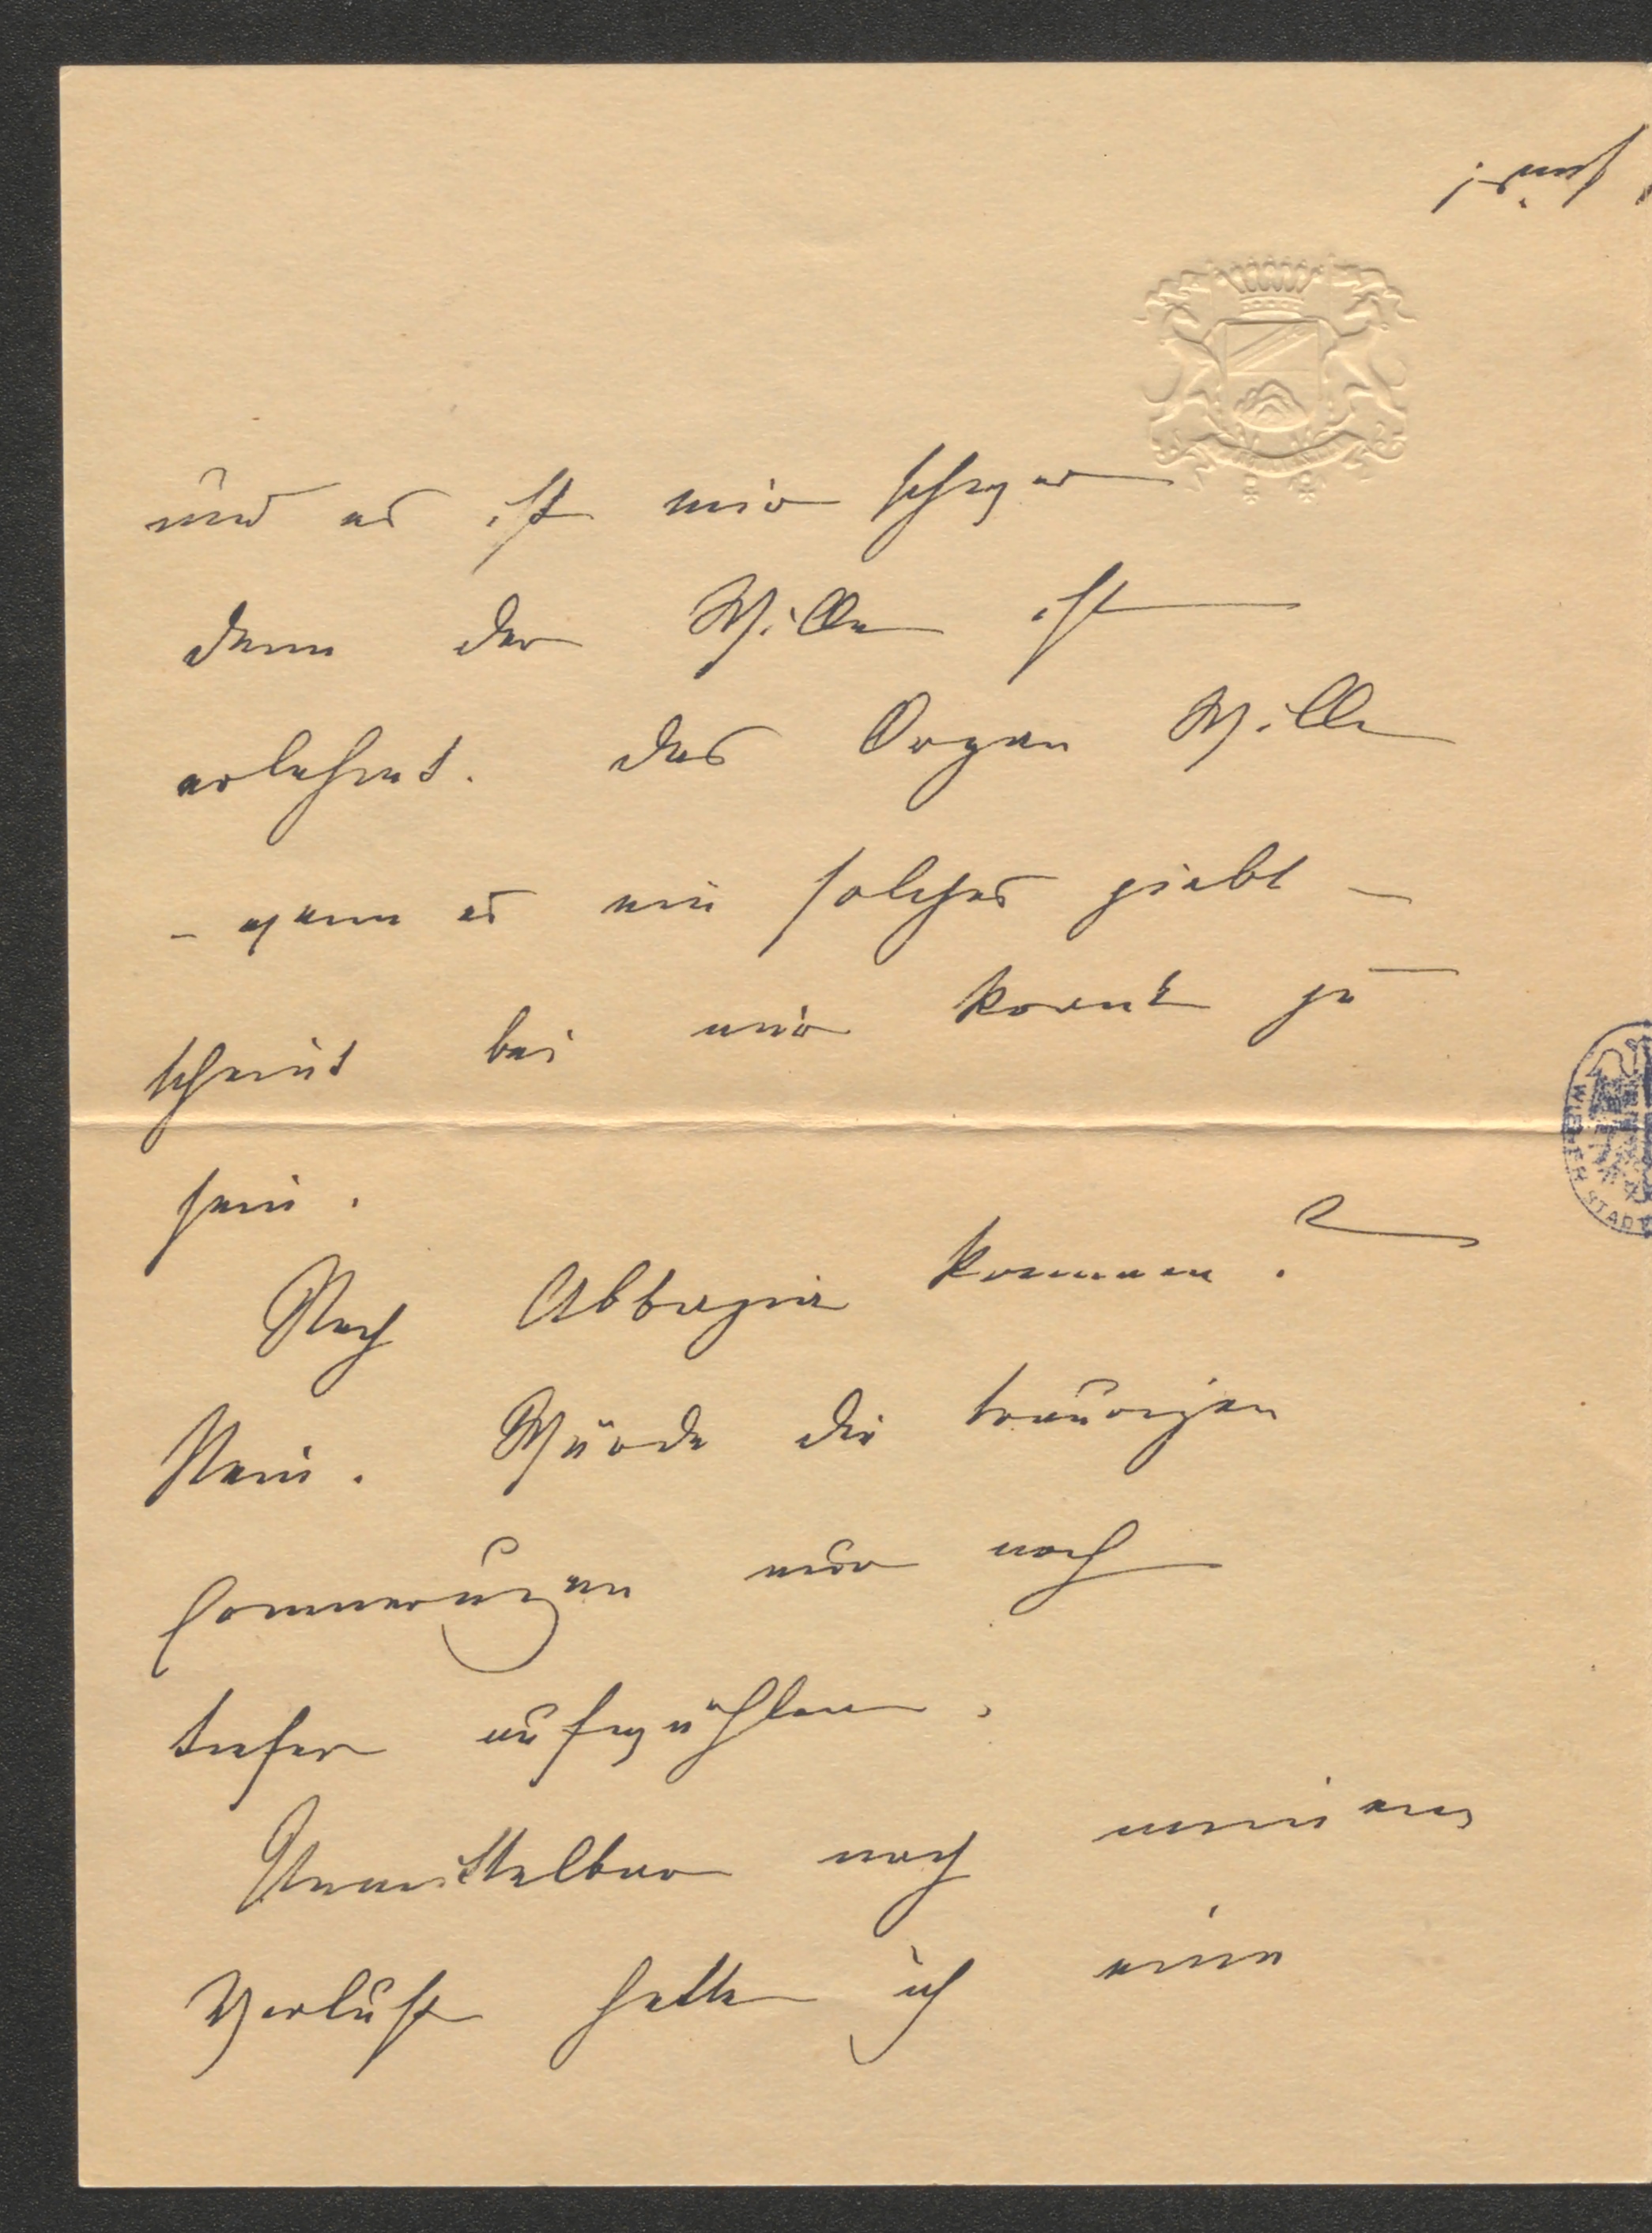 und es ist mir schwer
denn der Wille ist
erlahmt. das Organ Wille
- wenn es ein solches giebt -
scheint bei mir krank zu
sein.
Nach Abbazia kommen?
Nein. Würde die traurigen
Erinnerungen nur noch
tiefer aufwühlen.
Unmittelbar nach meinem
Verlust hatte ich eine
WIENER STADT